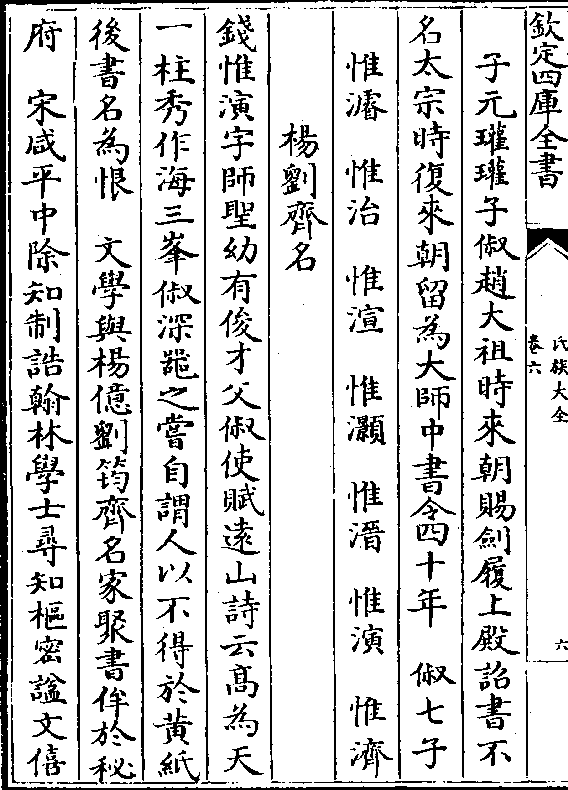 欽定四庫全書
氏族大全
卷六
六
子元瓘瓘子俶趙太祖時來朝賜劍履上殿詔書不
名太宗時復來朝留為大師中書令四十年　俶七子
惟濬　惟治　惟渲　惟灝　惟溍　惟演　惟濟
楊劉齊名
錢惟演字師聖幼有俊才父俶使賦遠山詩云髙為天
一柱秀作海三峯俶深噐之嘗自謂人以不得於黄紙
後書名為恨　文學與楊億劉筠齊名家聚書侔於秘
府　宋咸平中除知制誥翰林學士尋知樞密諡文僖